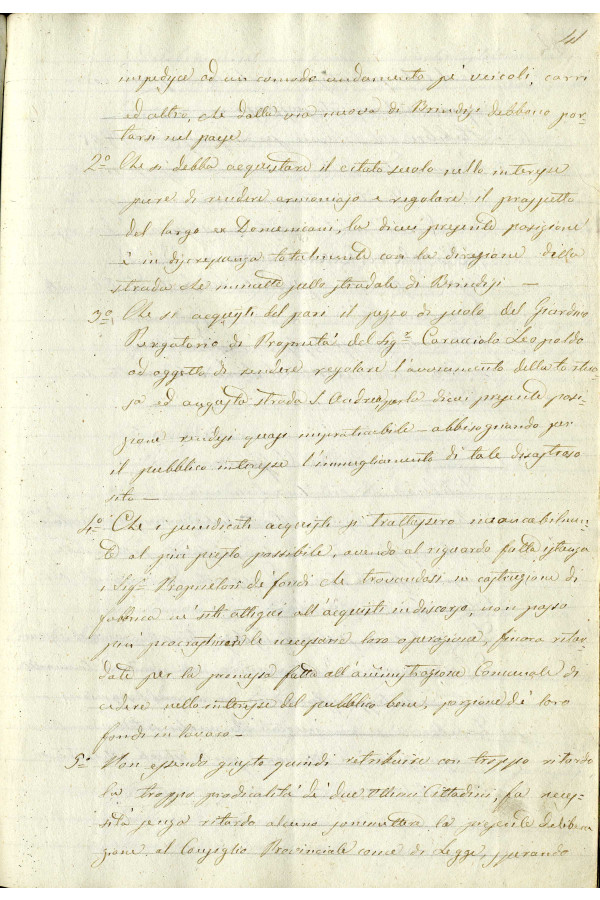 41
impedisce ad un comodo andamento pe' veicoli, carri
ed altro, che dalla via nuova di Brindisi debbono por-
tarsi nel paese
2º Che si debba acquistare il citato suolo nello interesse
pure di rendere armonioso e regolare il prospetto
del largo ex Domenicani, la di cui presente posizione
è in discrepanza totalmente con la direzione della
strada che mette sullo stradale di Brindisi —
3º Che si acquisti del pari il pezzo di suolo del Giardino
Pergatorio di Proprietà del Sigr. Caracciolo Leopoldo
ad oggetto di rendere regolare l'avviamento della tortuo-
sa ed angusta strada S. Andrea, per la di cui presente posi-
zione rendesi quasi impraticabile — abbisognando per
il pubblico interesse l'immegliamento di tale disastroso
sito —
4º Che i suindicati acquisti si trattassero immancabilmen-
te al più presto possibile, avendo al riguardo fatto istanza
i Sigri Proprietori de' fondi che trovandosi in costruzione di
fabbrica ne' siti attigui all'acquisti in discorso, non posso
più procrastinare le necessarie loro operazione, finora ritar-
date per la promessa fatta all'amministrazione Comunale di
cedere nello interesse del pubblico bene, porzione de' loro
fondi in lavoro —
5º Non essendo giusto quindi retribuire con troppo ritardo
la troppo prodicalità de' due Ottimi Cittadini, fa neces-
sità senza ritardo alcuno sommettere la presente delibera-
zione al Consiglio Provinciale come di Legge, sperando